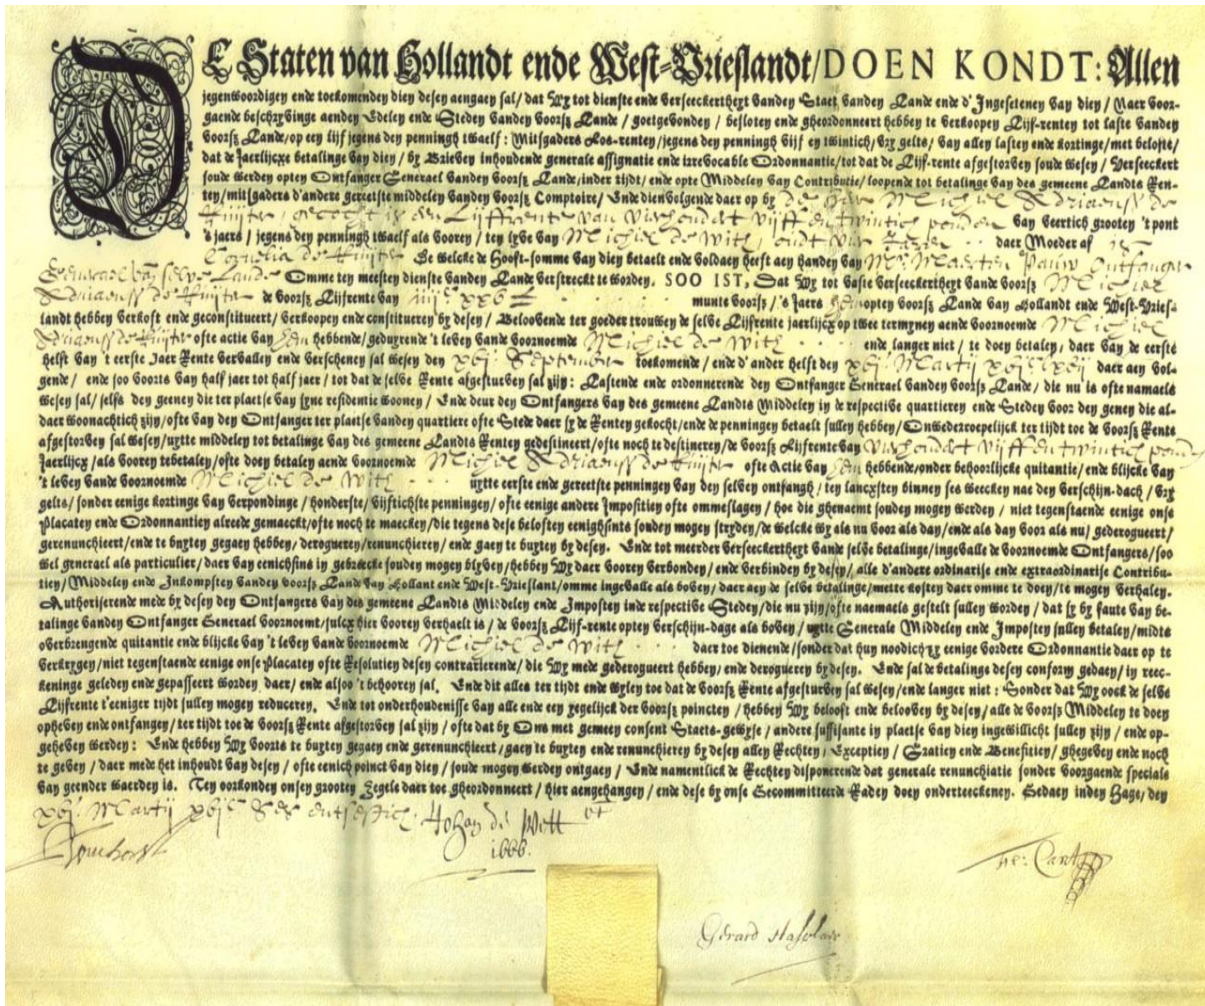 DE Staten van Hollandt ende West-Vrieslandt/DOEN KONDT: Allen
jegenwoordigen ende toekomenden dien desen aengaen sal/ dat Wy tot dienste ende verseeckertheyt vanden Staet vanden Lande ende d'Ingesetenen van dien/ Naer voor-
gaende beschryvinge aenden Edelen ende Steden vanden voorsz Lande/ goetgevonden/ besloten ende gheordonneert hebben te verkoopen Lijf-renten tot laste vanden
voorsz Lande/op een lijf jegens den penningh twaelf: Mitsgaders Los-renten/jegens den penningh vijf en twintich/ vry gelts/ van allen lasten ende kortinge/met belofte/
dat de Jaerlijcxe betalinge van dien/ by Brieven inhoudende generale assignatie ende irrevocable Ordonnantie/tot dat de Lijf-rente afgestorven soude wesen/ verseeckert
soude werden opten Ontfanger Generael vanden voorsz Lande/inder tijdt/ ende opte Middelen van Contributie/ loopende tot betalinge van des gemeene Landts Ren-
ten/mitsgaders d'andere gereetste middelen vanden voorsz Comptoire/ Ende dienvolgende daer op by de heer Michiel Adriaensz de
Ruijter, gecocht is een Lijffrente van vierhondert vijff en twintich ponden van veertich grooten 't pont
's jaers/ jegens den penningh twaelf als vooren/ ten lyve van Michiel de Witt, oudt vier Jaeren daer Moeder af is
Cornelia de Ruijter De welcke de Hooft-somme van dien betaelt ende voldaen heeft aen handen van Mr. Maerten Pauw Ontfanger
Generael van selve Lande Omme ten meesten dienste vanden Lande verstreckt te worden. SOO IST, Dat Wy tot vaste verseeckertheyt vande voorsz Michiel
Adriaensz de Ruijter de voorsz Lijfrente van iiijc xxv £ munte voorsz/ 's Jaers hem opten voorsz Lande van Hollandt ende West-Vries-
landt hebben verkoft ende geconstitueert/ verkoopen ende constitueren by desen/ Belovende ter goeder trouwen de selve Lijfrente jaerlijcx op twee termynen aende voornoemde Michiel
Adriaensz de Ruijter ofte actie van hem hebbende/gedurende 't leven vande voornoemde Michiel de Witt ende langer niet/ te doen betalen, daer van de eerste
helft van 't eerste Jaer Rente vervallen ende verschenen sal wesen den xvij September toekomende/ ende d'ander helft den xvij Martij xvjc lxvij daer aen vol-
gende/ ende soo voorts van half jaer tot half jaer/ tot dat de selve Rente afgesturven sal zijn: Lastende ende ordonnerende den Ontfanger Generael vanden voorsz Lande/ die nu is ofte namaels
wesen sal/ selfs den geenen die ter plaetse van syne residentie woonen/ Ende deur den Ontfangers van des gemeene Landts Middelen in de respective quartieren ende Steden voor den genen die al-
daer woonachtich zijn/ofte van den Ontfanger ter plaetse vanden quartiere ofte Stede daer sy de Renten gekocht/ende de penningen betaelt sullen hebben/ Onwederroepelijck ter tijdt toe de voorsz Rente
afgestorven sal wesen/uytte middelen tot betalinge van des gemeene Landts Renten gedestineert/ofte noch te destineren/ de voorsz Lijfrente van vierhondert vijff en twintich ponden
Jaerlijcx/als vooren te betalen/ofte doen betalen aende voornoemde Michiel Adriaensz de Ruijter ofte Actie van hem hebbende/onder behoorlijcke quitantie/ ende blijcke van
't leven vande voornoemde Michiel de Witt uytte eerste ende gereetste penningen van den selven ontfangh/ ten lancxsten binnen ses weecken nae den verschijn-dach/ vry
gelts/ sonder eenige kortinge van verpondinge/ honderste/ vijftichste penningen/ ofte eenige andere Impositien ofte ommeslagen/ hoe die ghenaemt souden mogen werden/ niet tegenstaende eenige onse
Placaten ende Ordonnantien alreede gemaeckt/ofte noch te maecken/die tegens dese beloften eenighsints souden mogen stryden/de welcke wy als nu voor als dan/ende als dan voor als nu/ gederogueert/
gerenunchieert/ende te buyten gegaen hebben/ derogueren/renunchieren/ ende gaen te buyten by desen. Ende tot meerder verseeckertheyt vande selve betalinge/ingevalle de voornoemde Ontfangers/soo
wel generael als particulier/ daer van eenichsins in gebreecke souden mogen blyven/hebben Wy daer vooren verbonden/ ende verbinden by desen/ alle d'andere ordinarise ende extraordinarise Contribu-
tien/ Middelen ende Inkompsten vanden voorsz Lande van Hollant ende West-Vrieslant/omme ingevalle als boven/ daer aen de selve betalinge/mette kosten daer omme te doen/te mogen verhalen.
Authoriserende mede by desen den Ontfangers van des gemeene Landts Middelen ende Imposten inde respective Steden/die nu zijn/ofte naemaels gestelt sullen worden/ dat sy by faute van be-
talinge vanden Ontfanger Generael voornoemt/sulcx hier vooren verhaelt is/ de voorsz Lijf-rente opten verschijn-dage als boven/ uytte Generale Middelen ende Imposten sullen betalen/midts
overbrengende quitantie ende blijcke van 't leven vande voornoemde Michiel de Witt daer toe dienende/sonder dat hun noodich zy eenige vordere Ordonnantie daer op te
verkrygen/niet tegenstaende eenige onse Placaten ofte Resolutien desen contrarierende/ die Wy mede gederogueert hebben/ ende derogueren by desen. Ende sal de betalinge desen conform gedaen/ in reec-
keninge geleden ende gepasseert worden daer/ ende alsoo 't behooren sal. Ende dit alles ter tijdt ende wylen toe dat de voorsz Rente afgesturven sal wesen/ende langer niet: Sonder dat Wy oock de selve
Lijfrente t'eeniger tijdt sullen mogen reduceren. Ende tot onderhoudenisse van alle ende een yegelijck der voorsz poincten/ hebben Wy belooft ende beloven by desen/ alle de voorsz Middelen te doen
opheven ende ontfangen/ ter tijdt toe de voorsz Rente afgestorven sal zijn/ ofte dat by Ons met gemeen consent Staets-gewyse/ andere suffisante in plaetse van dien ingewillicht sullen zijn/ ende op-
geheven werden: Ende hebben Wy voorts te buyten gegaen ende gerenunchieert/ gaen te buyten ende renunchieren by desen allen Rechten/ Exceptien/ Gratien ende Benefitien/ ghegeven ende noch
te geven/ daer mede het inhoudt van desen/ ofte eenich poinct van dien/ soude mogen werden ontgaen/ Ende namentlick de Rechten disponerende dat generale renunchiatie sonder voorgaende speciale
van geender waerden is. Ten oorkonden onsen grooten Zegele daer toe gheordonneert/ hier aengehangen/ ende dese by onse Gecommitteerde Raden doen onderteeckenen. Gedaen inden Hage/ den
xvij Martij xvjc Ses entsestich. Johan de Witt
1666.
Gerard Hasselaer